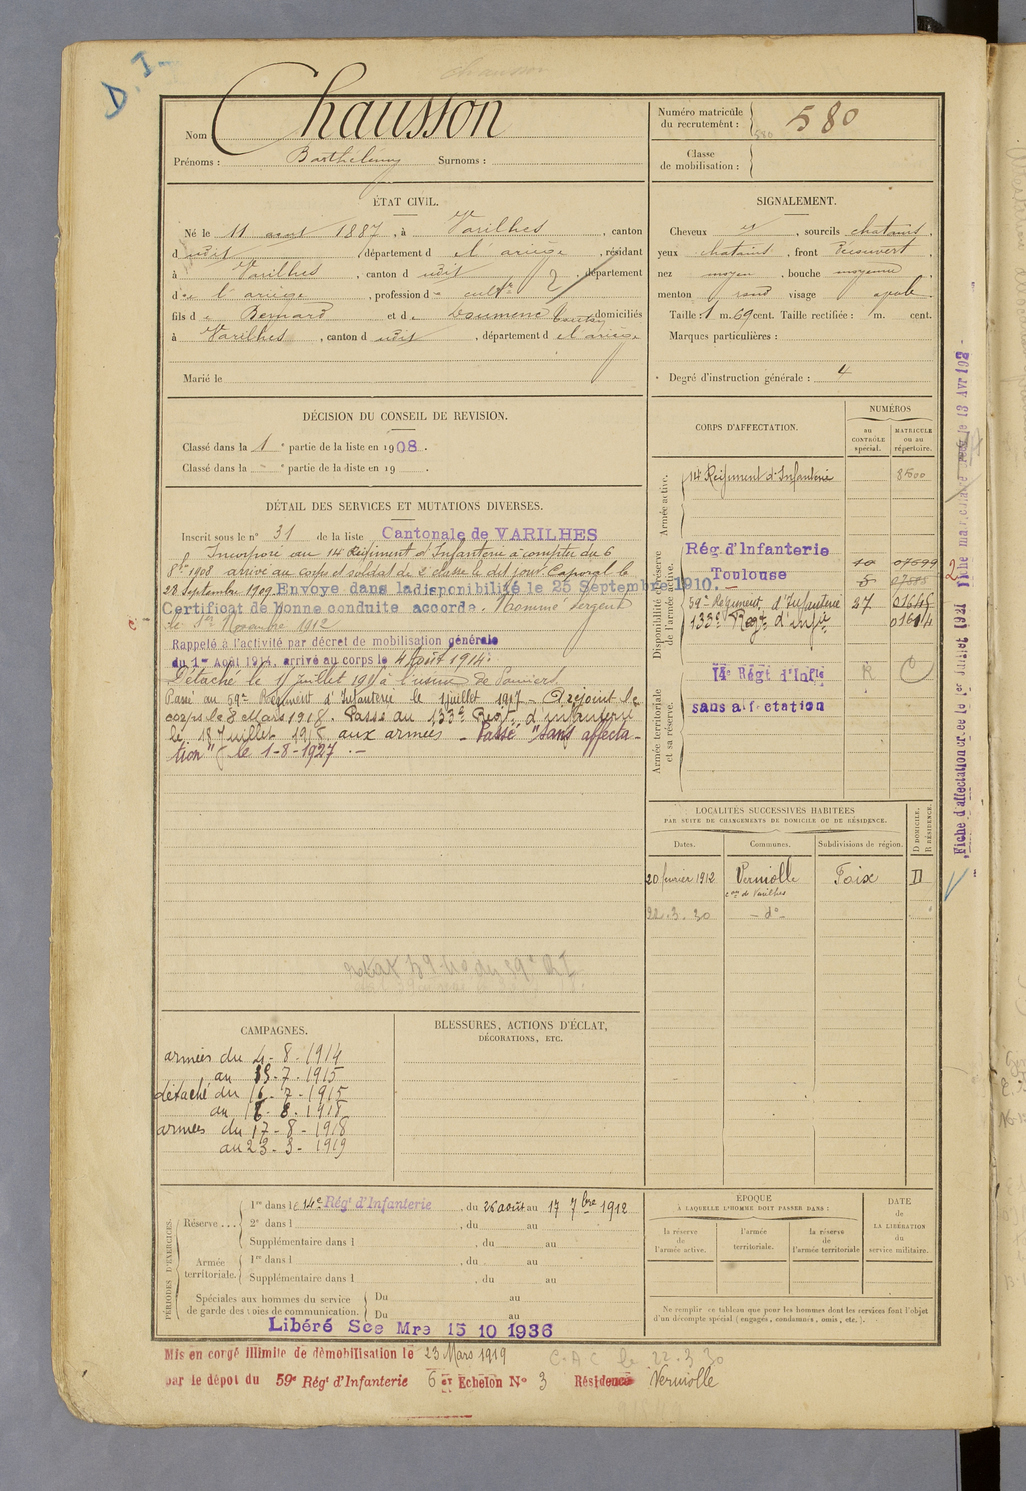 D. I.
Chausson
Nom Chausson
Prénoms : Barthélémy Surnoms :
Numéro matricule du recrutement : 580
580
Classe de mobilisation :
ÉTAT CIVIL.
Né le 11 août 1887, à Varilhes, canton
d udit, département d e l'ariège, résidant
à Varilhes, canton d udit, département
d e l'ariège, profession d e cultr 2
fils de Bernard et de Doumenc domiciliés
à Varilhes, canton d udit, département d e l'ariège
Marié le
SIGNALEMENT.
Cheveux et, sourcils chatains,
yeux chatains, front Découvert,
nez moyen, bouche moyenne,
menton rond visage ovale.
Taille 1 m. 69 cent. Taille rectifiée : m. cent.
Marques particulières :
Degré d'instruction générale : 4
DÉCISION DU CONSEIL DE REVISION.
Classé dans la 1e partie de la liste en 1908.
Classé dans la - e partie de la liste en 19 .
DÉTAIL DES SERVICES ET MUTATIONS DIVERSES.
Inscrit sous le n° 31 de la liste Cantonale de VARILHES
Incorporé au 14e Régiment d'Infanterie à compter du 6
8bre 1908 arrivé au corps et soldat de 2e classe le dit jour. Caporal le
28 Septembre 1909. Envoyé dans la disponibilité le 25 Septembre 1910.
Certificat de bonne conduite accordé. Nommé Sergent
le 1er Novembre 1912
Rappelé à l'activité par décret de mobilisation générale
du 1er Août 1914, arrivé au corps le 4 Août 1914.
Détaché le 15 juillet 1915 à l'usine de Pamiers.
Passé au 59e Régiment d'Infanterie le 1 juillet 1917. Rejoint le
corps le 8 Mars 1918. Passé au 133e Régt d'infanterie
le 18 Juillet 1918 aux armées - Passé "sans affecta-
tion" le 1-8-1927. -
CORPS D'AFFECTATION.
NUMÉROS
au CONTRÔLE spécial.
MATRICULE ou au répertoire.
Armée active.
14e Régiment d'Infanterie 8500
Disponibilité et réserve de l'armée active.
Rég. d'Infanterie
Toulouse
59e Régiment d'Infanterie 27
133e Régt d'infie
Armée territoriale et sa réserve.
14e Régt d'Infie R
sans affectation
LOCALITÉS SUCCESSIVES HABITÉES
PAR SUITE DE CHANGEMENTS DE DOMICILE OU DE RÉSIDENCE.
Dates. Communes. Subdivisions de région. D DOMICILE. R RÉSIDENCE.
20 février 1912 Verniolle Foix D
con de Varilhes
22.3.30 - do -
CAMPAGNES.
armées du 4-8-1914
au 15-7-1915
détaché du 16-7-1915
au 16-8-1918
armées du 17-8-1918
au 23-3-1919
BLESSURES, ACTIONS D'ÉCLAT,
DÉCORATIONS, ETC.
PÉRIODES D'EXERCICES.
Réserve ... 1re dans le 14e Régt d'Infanterie, du 26 août au 17 7bre 1912
2e dans l , du au
Supplémentaire dans l , du au
Armée territoriale. 1re dans l , du au
Supplémentaire dans l , du au
Spéciales aux hommes du service de garde des voies de communication. Du au
Du au
Libéré Sce Mre 15 10 1936
ÉPOQUE
À LAQUELLE L'HOMME DOIT PASSER DANS :
la réserve de l'armée active.
l'armée territoriale.
la réserve de l'armée territoriale
DATE de LA LIBÉRATION du service militaire.
Ne remplir ce tableau que pour les hommes dont les services font l'objet
d'un décompte spécial (engagés, condamnés, omis, etc.).
Mis en congé illimité de démobilisation le 23 Mars 1919
par le dépôt du 59e Régt d'Infanterie 6e Echelon N° 3 Résidence Verniolle
C.A.C le 22.3.30